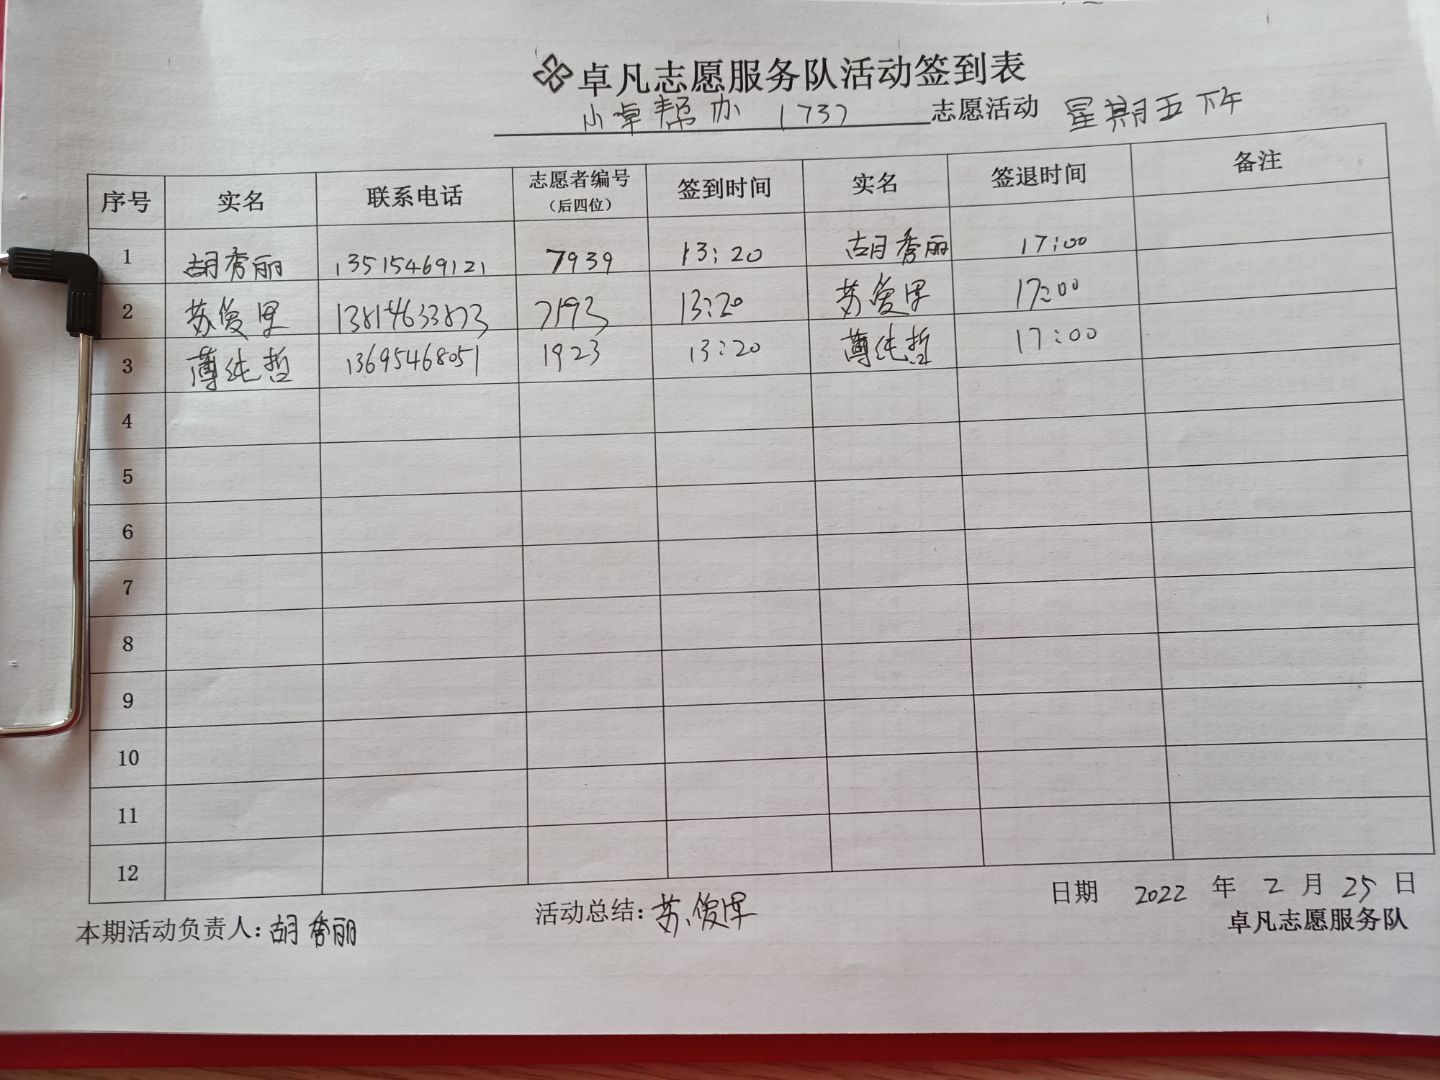 卓凡志愿服务队活动签到表
小卓帮办 1737 志愿活动 星期五下午
序号 实名 联系电话 志愿者编号（后四位） 签到时间 实名 签退时间 备注
1 胡秀丽 13515469121 7939 13:20 胡秀丽 17:00
2 苏俊 13814633873 7193 13:20 苏俊 17:00
3 薄纯哲 13695468051 1923 13:20 薄纯哲 17:00
4
5
6
7
8
9
10
11
12
本期活动负责人:胡秀丽 活动总结:苏俊 日期 2022 年 2 月 25 日
卓凡志愿服务队